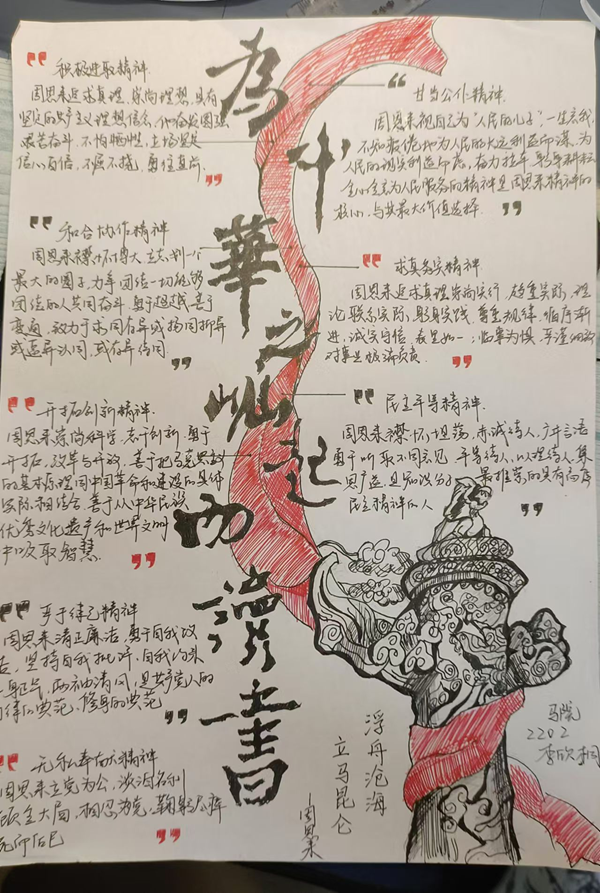 为中華之崛起而讀書
积极进取精神
周恩来追求真理,崇尚理想,具有
坚定的共产主义理想信念,他奋发图强
艰苦奋斗,不怕牺牲,立场坚定
信心百倍,不屈不挠,勇往直前.
甘当公仆精神.
周恩来视自己为"人民的儿子",一生忘我,
不知疲倦地为人民的长远利益而谋,为
人民的现实利益而忙,
全心全意为人民服务的精神是周恩来精神的
核心,与其最大价值选择.
和合协作精神
周恩来襟怀博大,主张"划一个
最大的圈子,力争团结一切能够
团结的人共同奋斗,勇于超越,善于
变通,致力于求同存异或扬同抑异
或这异认同,或存异得同.
求真务实精神
周恩来追求真理,崇尚实行,敬重实际,理
论联系实际,躬身实践,尊重规律,循序渐
进,诚实守信,表里如一;临事为惧,平谨细致
对事业极端负责.
开拓创新精神.
周恩来崇尚科学,志于创新,勇于
开拓,改革与开放,善于把马克思主义
的基本原理同中国革命和建设的具体
实际相结合,善于从中华民族
优秀文化遗产和世界文明
中吸取智慧.
民主平等精神.
周恩来襟怀坦荡,赤诚待人,广开言语
勇于听取不同意见,平等待人,以理待人,集
思广益,是知识分子最推崇的具有高度
民主精神的人
严于律己精神
周恩来清正廉洁,勇于自我改
造,坚持自我批评,自我约束
一身正气,两袖清风,是共产党人的
自律的典范,修身的典范
无私奉献精神
周恩来立党为公,淡泊名利
顾全大局,相忍为党,鞠躬尽瘁
死而后已
浮舟沧海
立马昆仑
周恩来
马院
2202
李欣桐